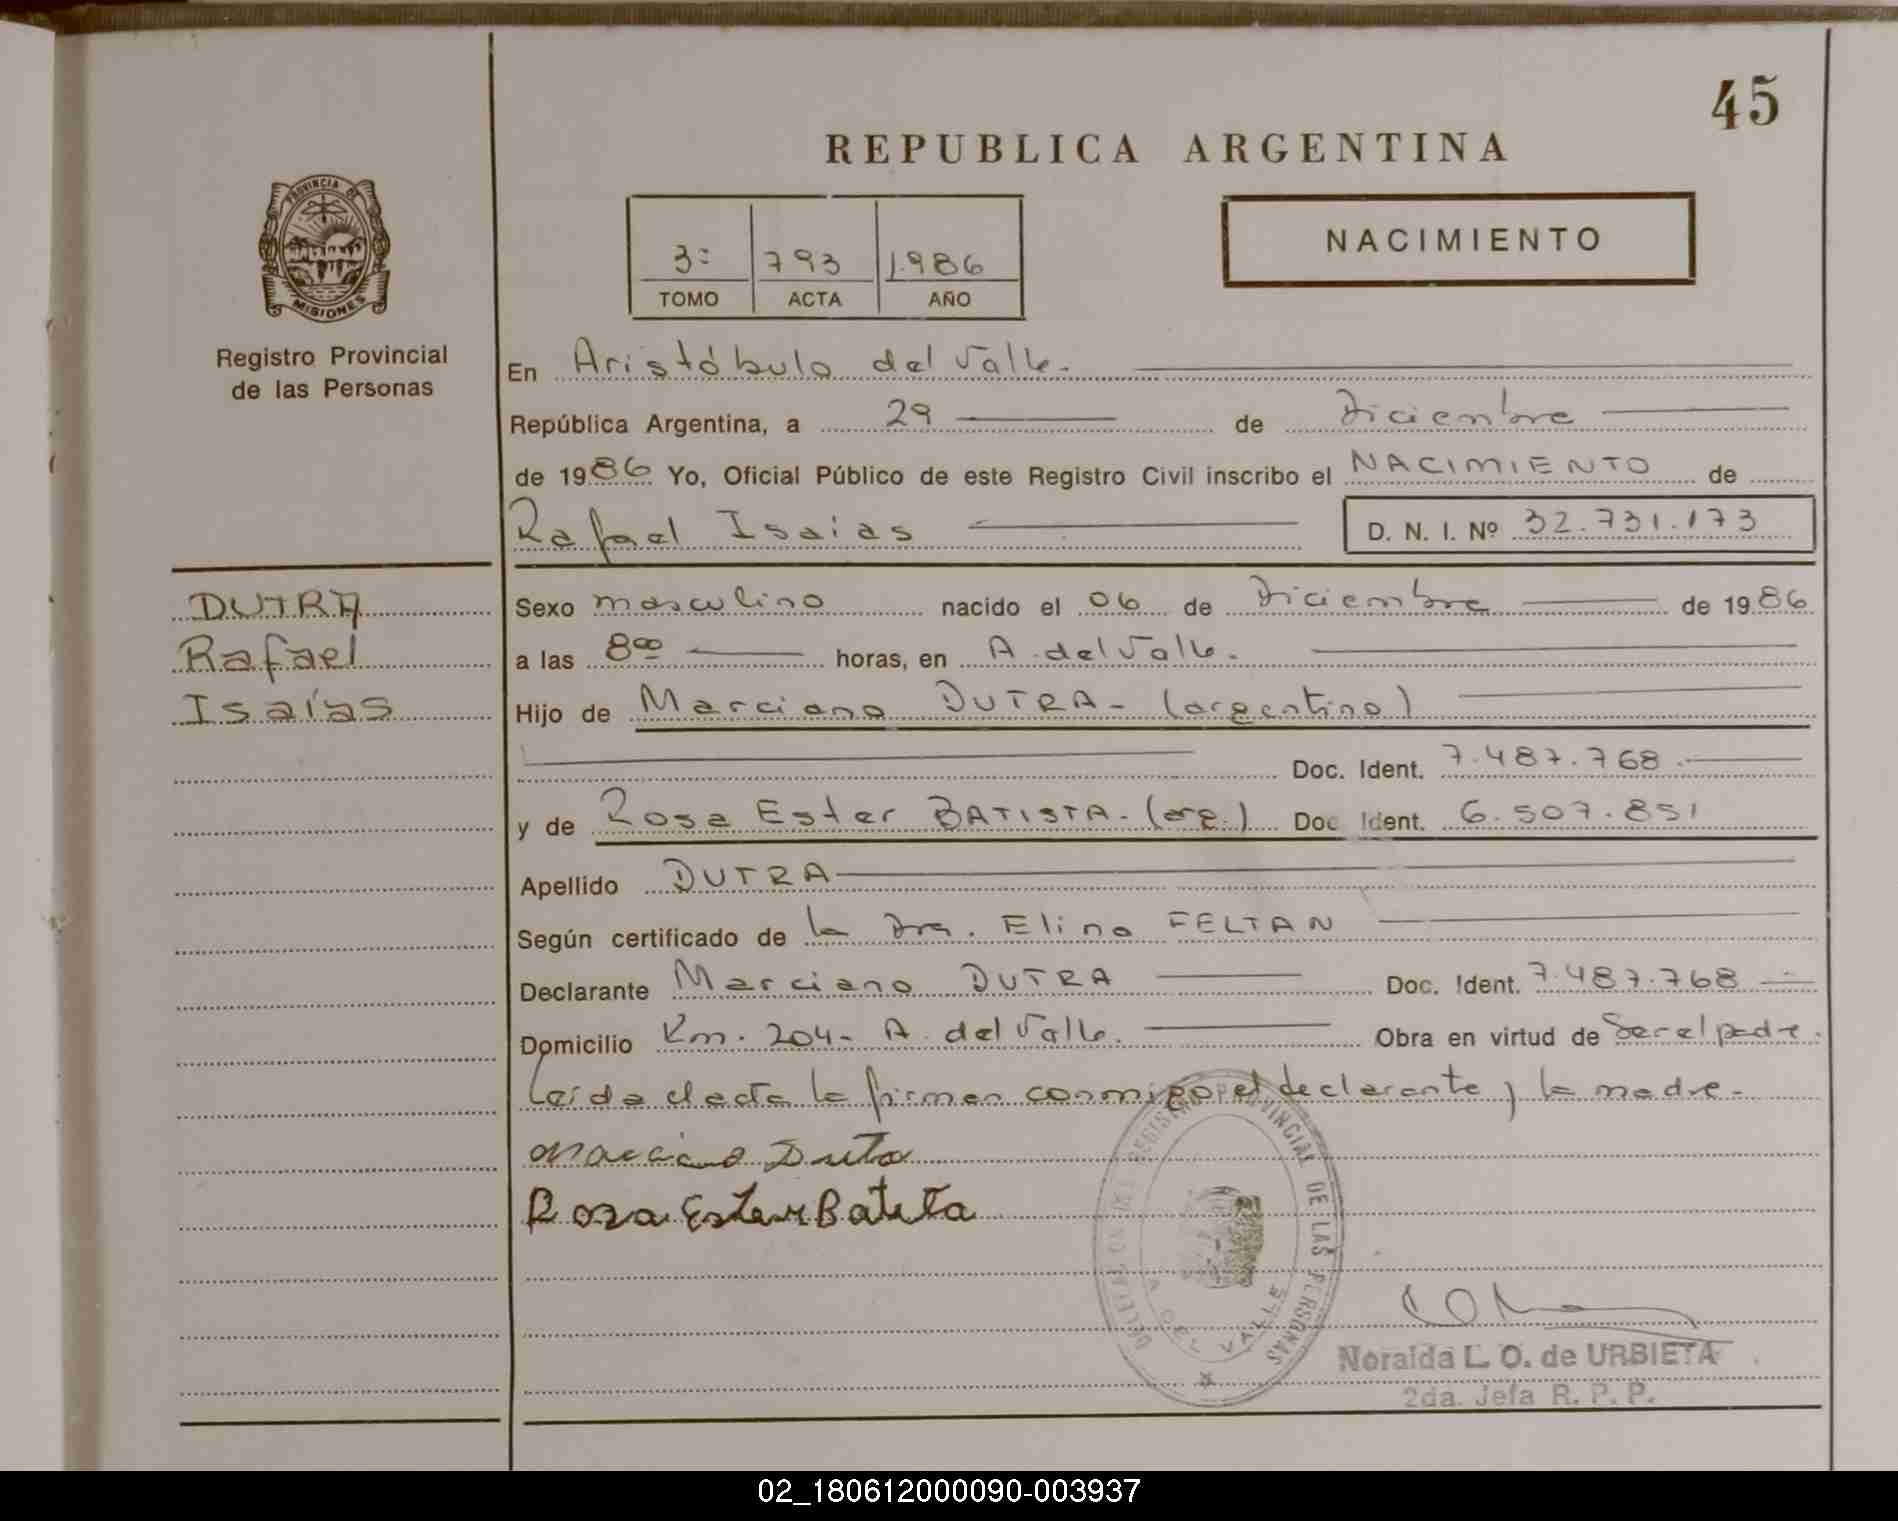 45
REPUBLICA ARGENTINA
PROVINCIA DE
MISIONES
Registro Provincial
de las Personas
3º 793 1.986
TOMO ACTA AÑO
NACIMIENTO
En Aristóbulo del Valle.
República Argentina, a 29 de Diciembre
de 1986 Yo, Oficial Público de este Registro Civil inscribo el NACIMIENTO de
Rafael Isaias D. N. I. Nº 32.731.173
DUTRA
Rafael
Isaías
Sexo masculino nacido el 06 de Diciembre de 1986
a las 8ºº horas, en A. del Valle.
Hijo de Marciano DUTRA - (argentino)
Doc. Ident. 7.487.768
y de Rosa Ester BATISTA - (arg.) Doc. Ident. 6.507.851
Apellido DUTRA
Según certificado de la Dra. Elina FELTAN
Declarante Marciano DUTRA Doc. Ident. 7.487.768
Domicilio Km. 204 - A. del Valle. Obra en virtud de Ser el padre.
Leída el acta la firman conmigo el declarante y la madre -
Marciano Dutra
Rosa Ester Batista
REGISTRO PROVINCIAL DE LAS PERSONAS
A. DEL VALLE
Noralda L. O. de URBIETA
2da. Jefa R. P. P.
02_180612000090-003937